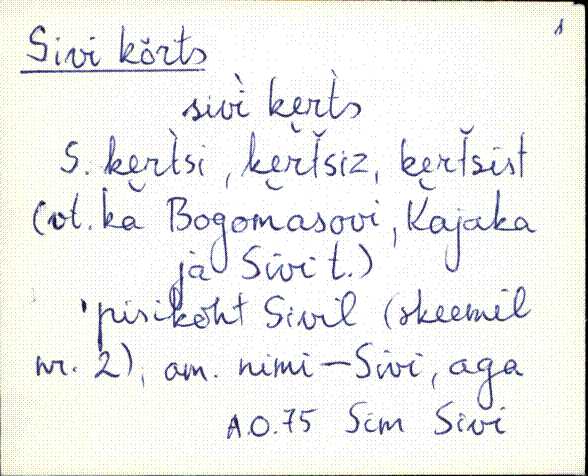 1
Sivi kõrts
sivì ke̮r̀ts
S. ke̮r̀tsi, ke̮r̆tsiz, ke̮r̆tsist
(vt. ka Bogomasovi, Kajaka
ja Sivi t.)
'pisikoht Sivil (skeemil
nr. 2), am. nimi – Sivi, aga
A.O.75 Sim Sivi